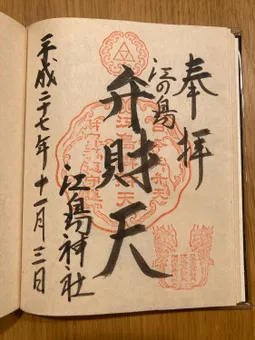 奉拝
江の島
弁財天
江島神社
平成二十七年十一月三日